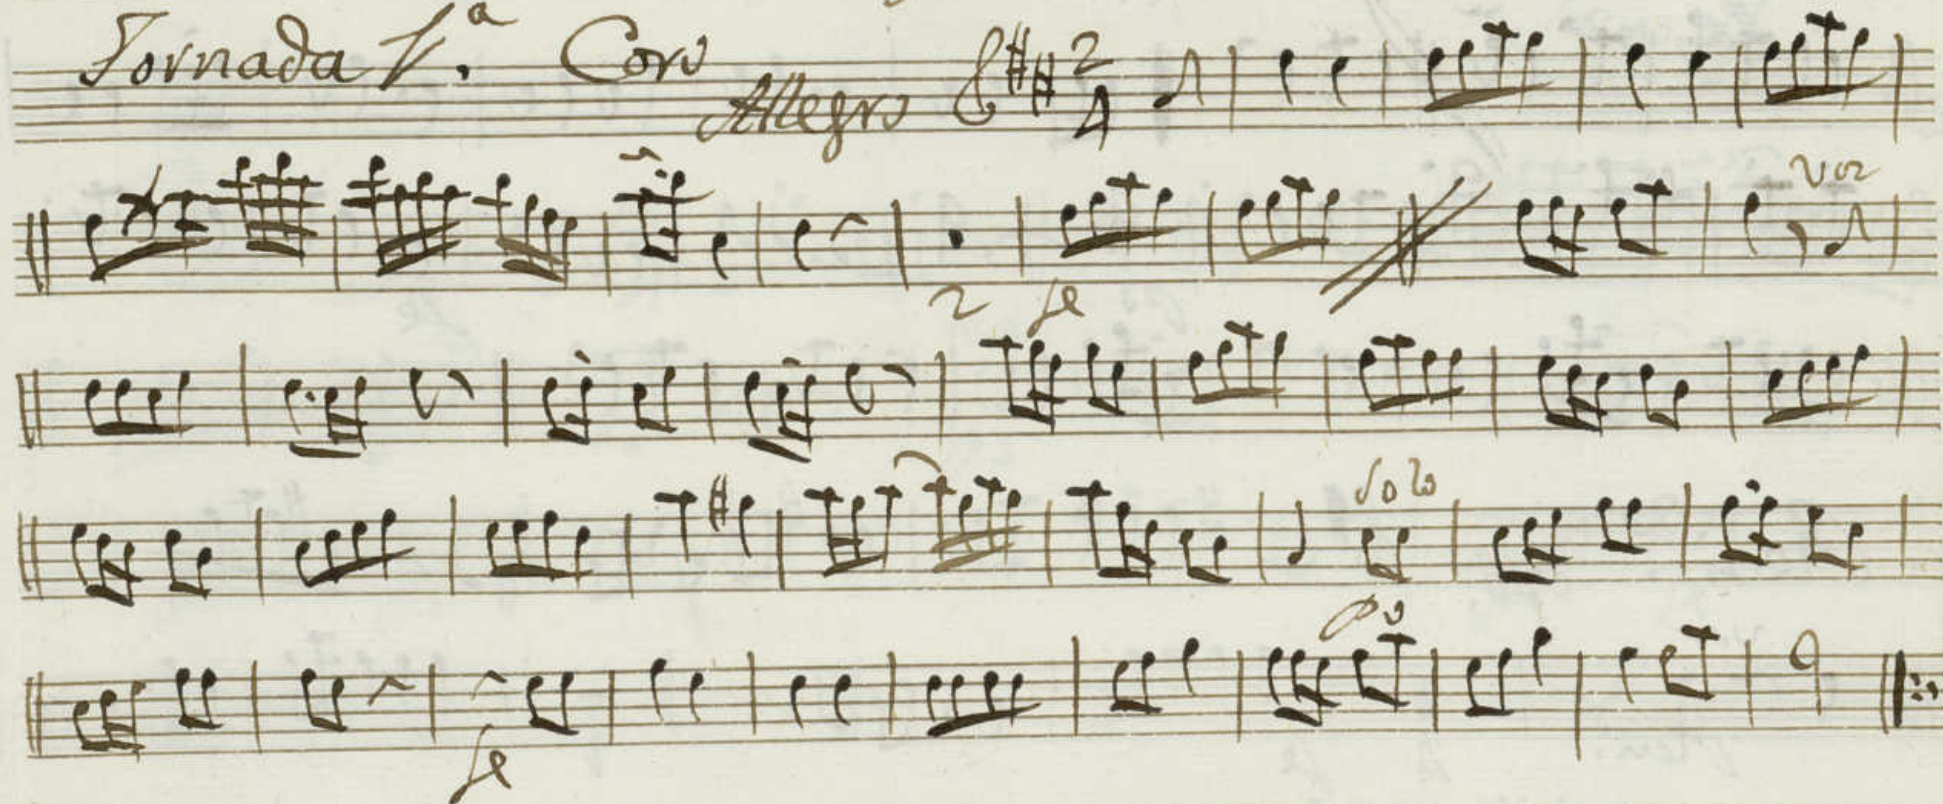 Jornada 1.ª Coro
Allegro 2/4
voz
2 fe
Solo
Po
fe